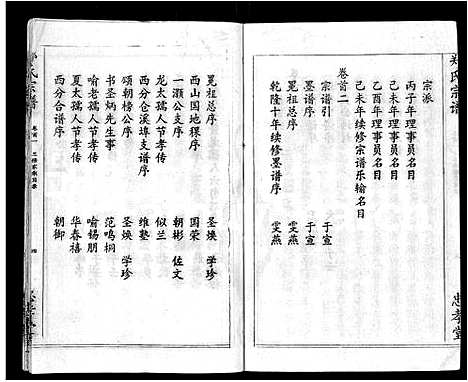 郑氏宗谱
忠孝堂
宗派
丙子年理事员名目
己未年理事员名目
乙酉年理事员名目
己未年续修宗谱乐输名目
卷首二
宗谱引 于宣
墨谱序 于宣
乾隆十年续修墨谱序 雯燕
冕祖总序 圣焕 学珍
西山国稞序 国荣
一灏公支序 朝彬 佐文
龙太孺人节孝传 似兰
西分仓溪埠支谱序 维塾
颂朝榜公序 圣焕 学珍
书圣炳先生事 范鸣桐
喻老孺人节孝传 喻锡朋
夏太孺人节孝传 华春禧
西分合谱序 朝御
氏宗谱
卷首一
四